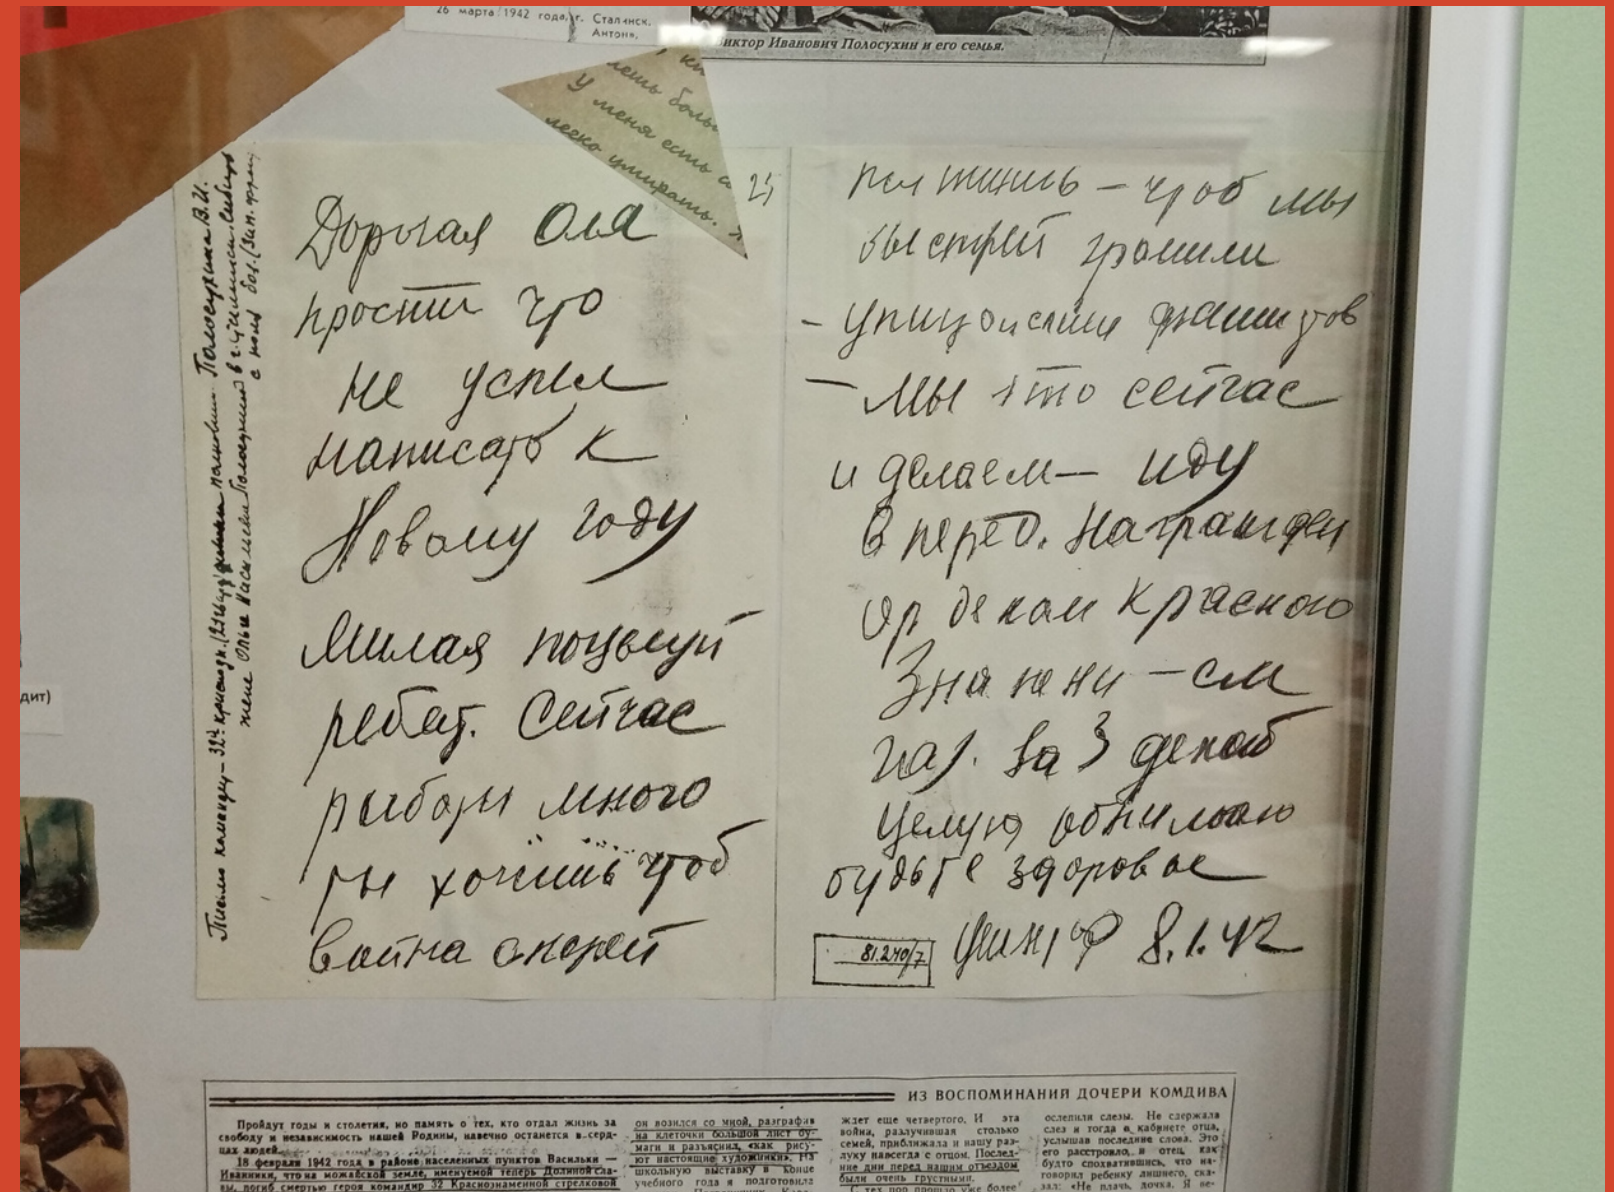 26 марта 1942 года, г. Сталинск.
Антон».
Виктор Иванович Полосухин и его семья.
лешь боль
У меня есть
легко умирать.
Письмо командира 32й полковника Полосухина В.И.
жене Ольге Васильевне Полосухиной в
с поля боя.
Дорогая Оля
прости что
не успел
написать к
Новому году
Милая поцелуй
ребят. Сейчас
работы много
ты хочешь чтоб
война скорей
чтоб мы
быстрей громили
фашистов
– Мы это сейчас
и делаем – иду
вперед. Награжден
орденом Красного
Знамени – см
газ. за 3 декаб
Целую обнимаю
будьте здоровы
8.1.42
81.240/7
дит)
ИЗ ВОСПОМИНАНИЯ ДОЧЕРИ КОМДИВА
Пройдут годы и столетия, но память о тех, кто отдал жизнь за
свободу и независимость нашей Родины, навечно останется в серд-
цах людей.
18 февраля 1942 года в районе населенных пунктов Васильки —
Иванники, что на можайской земле, именуемой теперь Долиной сла-
вы, погиб смертью героя командир 32 Краснознаменной стрелковой
он возился со мной, разграфив
на клеточки большой лист бу-
маги и разъяснил, «как рису-
ют настоящие художники». На
школьную выставку в конце
учебного года я подготовила
ждет еще четвертого. И эта
война, разлучившая столько
семей, приближала и нашу раз-
луку навсегда с отцом. Послед-
ние дни перед нашим отъездом
были очень грустными.
С тех пор прошло уже более
ослепили слезы. Не сдержала
слез и тогда в кабинете отца,
услышав последние слова. Это
его расстроило, и отец, как
будто спохватившись, что на-
говорил ребенку лишнего, ска-
зал: «Не плачь, дочка. Я ве-